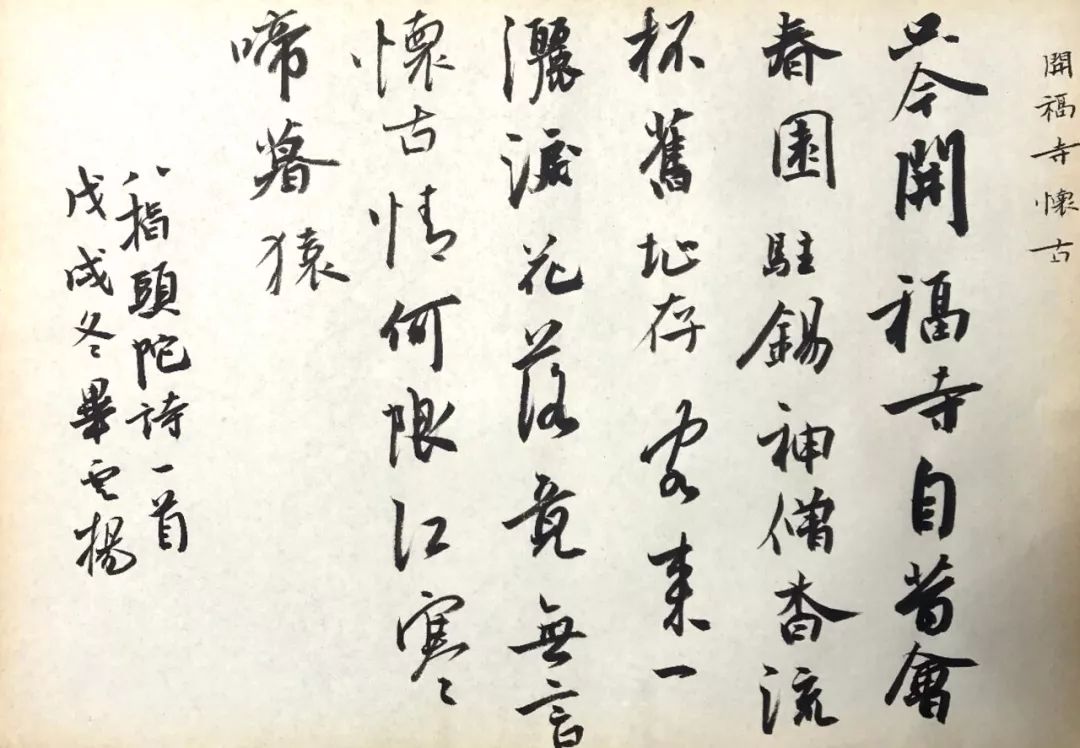 開福寺懷古
只今開福寺自昔會
春園駐錫神僧杳流
杯舊址存客來一
灑淚花落竟無言
懷古情何限江寒
啼暮猿
八指頭陀詩一首
戊戌冬畢雲楊